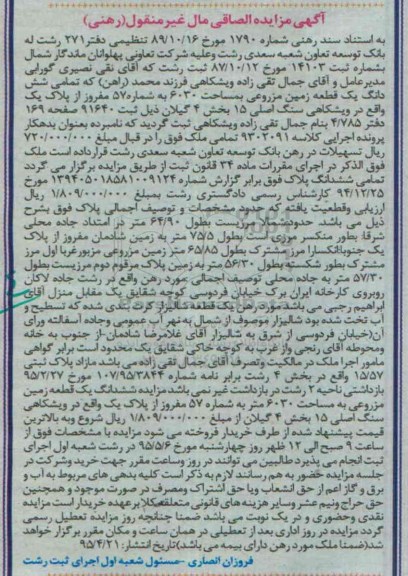 آگهی مزایده الصاقی مال غیر منقول(رهنی)
به استناد سند رهنی شماره ۱۷۹۰ مورخ ۸۹/۱۰/۱۶ تنظیمی دفتر ۲۷۱ رشت له
بانک توسعه تعاون شعبه سعدی رشت وعلیه شرکت تعاونی پهلوانان ماندگار شمال
بشماره ثبت ۱۴۱۰۳ مورخ ۸۷/۱۰/۱۲ ثبت رشت که آقای نقی نصیری گورابی
مدیرعامل و آقای جمال تقی زاده ویشکاهی فرزند محمد (راهن) که تمامی شش
دانگ یک قطعه زمین مزروعی بمساحت ۶۰۳۰ به شماره ۵۷ مفروز از پلاک یک
واقع در ویشکاهی سنگ اصلی ۱۵ بخش ۴ گیلان ذیل ثبت ۹۱۶۴۰ صفحه ۱۶۹
دفتر ۴/۷۸۵ بنام جمال تقی زاده ویشکاهی ثبت گردید که نامبرده بعنوان بدهکار
پرونده اجرایی کلاسه ۹۳۰۲۰۹۱ تمامی ملک فوق را در قبال مبلغ ۷۲۰/۰۰۰/۰۰۰
ریال تسهیلات در رهن بانک توسعه تعاون شعبه سعدی رشت قرارداده است ملک
فوق الذکر در اجرای مقررات ماده ۳۴ قانون ثبت از طریق مزایده برگزار می گردد
تمامی ششدانگ پلاک فوق برابر گزارش شماره ۱۳۹۴۰۵۰۱۸۵۸۱۰۰۹۱۲۴ مورخ
۹۴/۱۲/۲۵ کارشناس رسمی دادگستری رشت بمبلغ ۱/۸۰۹/۰۰۰/۰۰۰ ریال
ارزیابی وقطعیت یافته که حدود مشخصات و توصیف اجمالی پلاک فوق بشرح
ذیل می باشد حدود شمالا مرزیست بطول ۶۴/۹۰ متر در امتداد جاده محلی
شرقا بطور منکسر مرزی است بطول ۷۵/۵ متر به زمین شادمان مفروز از پلاک
یک جنوباانکسارا مرزی مشترک بطول ۶۵/۸۵ متر زمین مزروعی مزبورغربا اول مرز
مشترک بطور شکسته بطول ۵۶/۳۰ متر به زمین پلاک مرقوم دوم مرزیست بطول
۵۷/۳۰ متر به جاده محلی توصیف اجمالی مورد رهن واقع در رشت جاده لاکان
روبروی کارخانه ایران برک خیابان فردوسی کوچه شقایق یک مقابل منزل آقای
ابراهیم رجبی می باشد مورد رهن یک قطعه شالیزار کرت بندی شده که تسطیح و
آب تخت شده بود شالیزار موصوف از شمال به نهر آب عمومی وجاده آسفالته ورای
آن(خیابان فردوسی از شرق به شالیزار آقای غلامرضا شادمان-از جنوب به خانه
ومحوطه آقای رنجبی واز غرب به کوچه خاکی شقایق یک محدود است برابر گواهی
مامور اجرا ملک در مالکیت وتصرف آقای جمال تقی زاده می باشد مازاد پلاک ثبتی
۱۵/۵۷ واقع در بخش ۴ رشت برابر نامه شماره ۱۰۷/۹۵۳۸۴۴ مورخ ۹۵/۲/۲۷
بازداشتی ناحیه ۲ رشت در بازداشت غیر نمی باشد مزایده ششدانگ یک قطعه زمین
مزروعی به مساحت ۶۰۳۰ متر به شماره ۵۷ مفروز از پلاک یک واقع در ویشکاهی
سنگ اصلی ۱۵ بخش ۴ گیلان از مبلغ ۱/۸۰۹/۰۰۰/۰۰۰ ریال شروع وبه بالاترین
قیمت پیشنهاد شده از طرف خریدار فروخته می شود مزایده با مشخصات فوق از
ساعت ۹ صبح الی ۱۲ ظهر روز چهارشنبه مورخ ۹۵/۵/۶ در رشت شعبه اول اجرای
ثبت انجام می پذیرد طالبین می توانند در روز وساعت مقرر جهت خرید وشرکت در
جلسه مزایده حضور به هم رسانند لازم به ذکر است کلیه بدهی های مربوط به آب و
برق و گاز اعم از حق انشعاب ویا حق اشتراک ومصرف در صورت موجود و همچنین
حق حراج ونیم عشر وسایر هزینه های قانونی متعلقه کلا بر عهده خریدار است مزایده
نقدی وحضوری و در یک نوبت می باشد ضمنا چنانچه روز مزایده تعطیل رسمی
گردد مزایده در روز اداری بعد از تعطیلی در همان ساعت و مکان مقرر برگزار خواهد
شد(ضمنا ملک مورد رهن دارای بیمه می باشد)تاریخ انتشار: ۹۵/۴/۲۱
فروزان انصاری -مسئول شعبه اول اجرای ثبت رشت